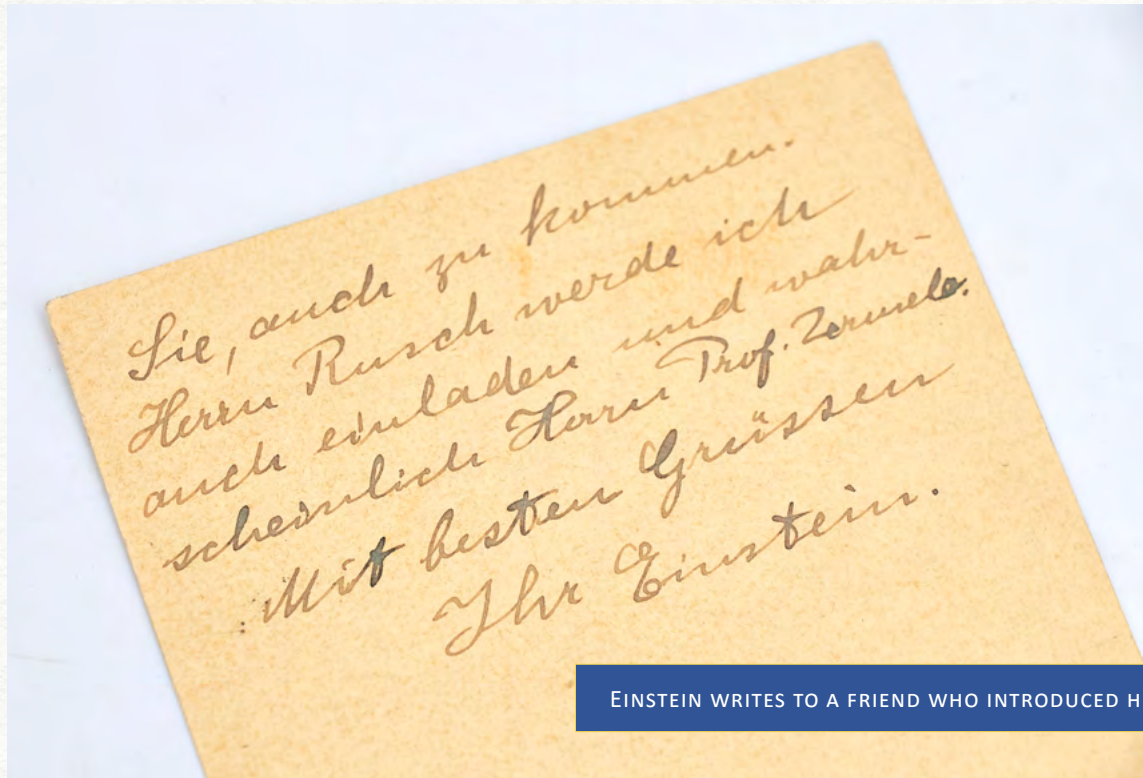 Sie, auch zu kommen.
Herrn Rusch werde ich
auch einladen und wahr-
scheinlich Herrn Prof. Zermelo.
Mit besten Grüssen
Ihr Einstein.
EINSTEIN WRITES TO A FRIEND WHO INTRODUCED H